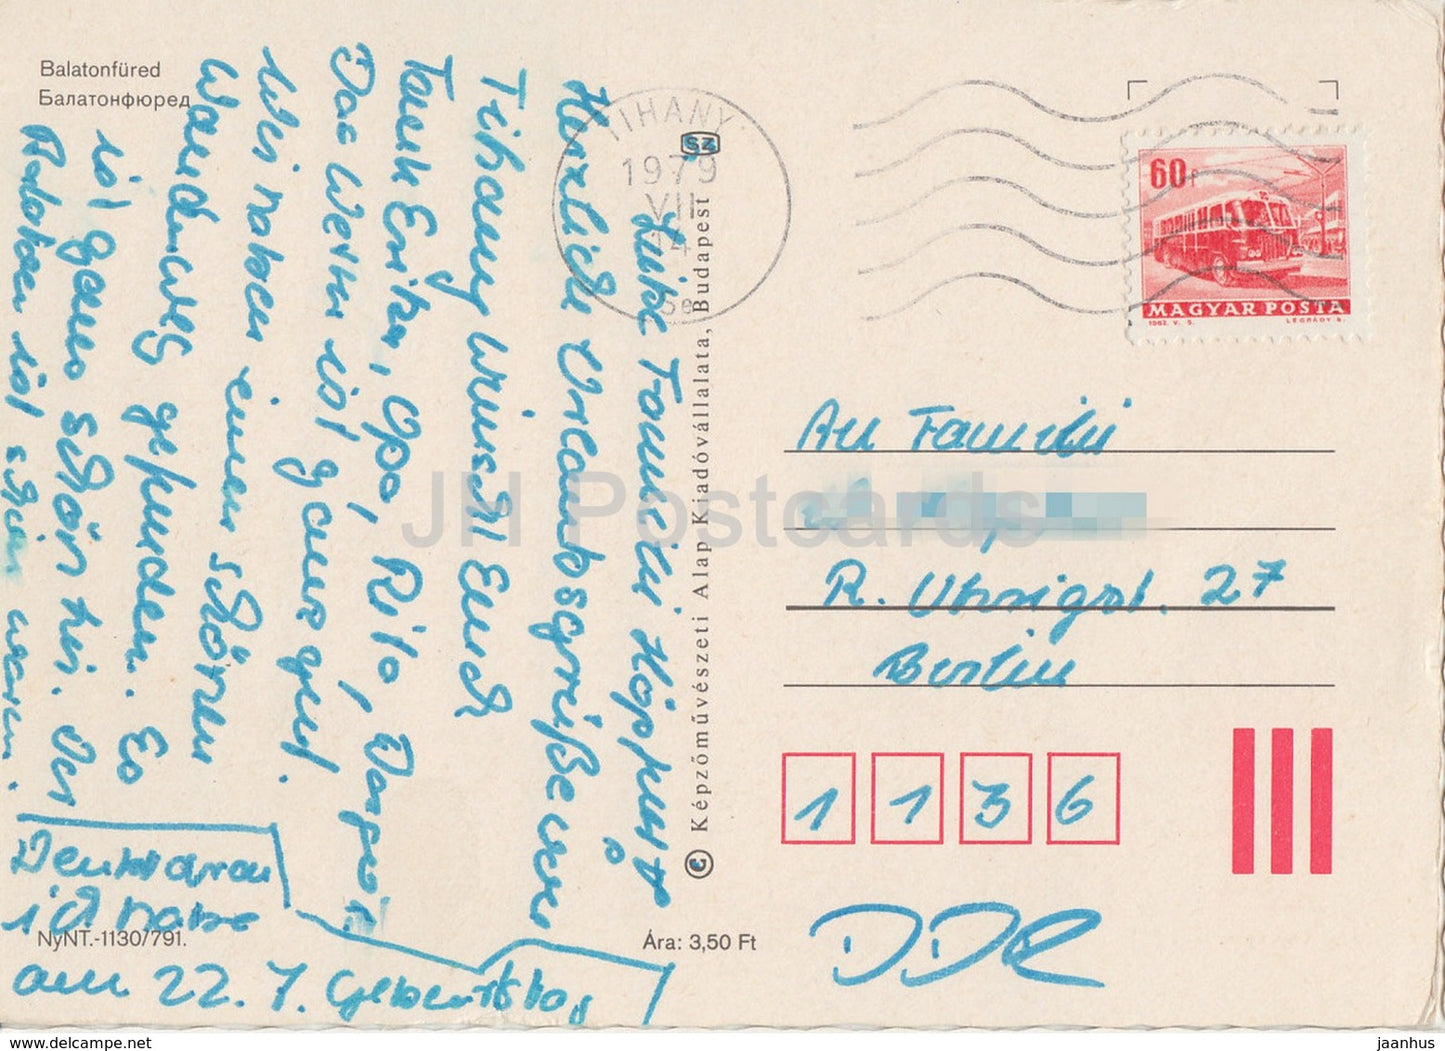 Balatonfüred
Балатонфюред
Familie
Herzliche Urlaubsgrüße aus
Tihany wünscht Euch
Tante Erika, Opa, Rita,
Das Wetter ist ganz gut.
Wir haben einen schönen
Wandweg gefunden. Es
ist ganz schön hei. Der
Balaton ist schön warm.
Denkt daran
ich habe
am 22. 7. Geburtstag
NyNT.-1130/791.
Ára: 3,50 Ft
SZ
© Képzőművészeti Alap Kiadóvállalata, Budapest
TIHANY
1979
VII
14
60f
MAGYAR POSTA
1962. V. 5.
LÉGRÁDY S.
An Familie
R. Uhrigst. 27
Berlin
1 1 3 6
DDR
JH Postcards
delcampe.net
jaanhus